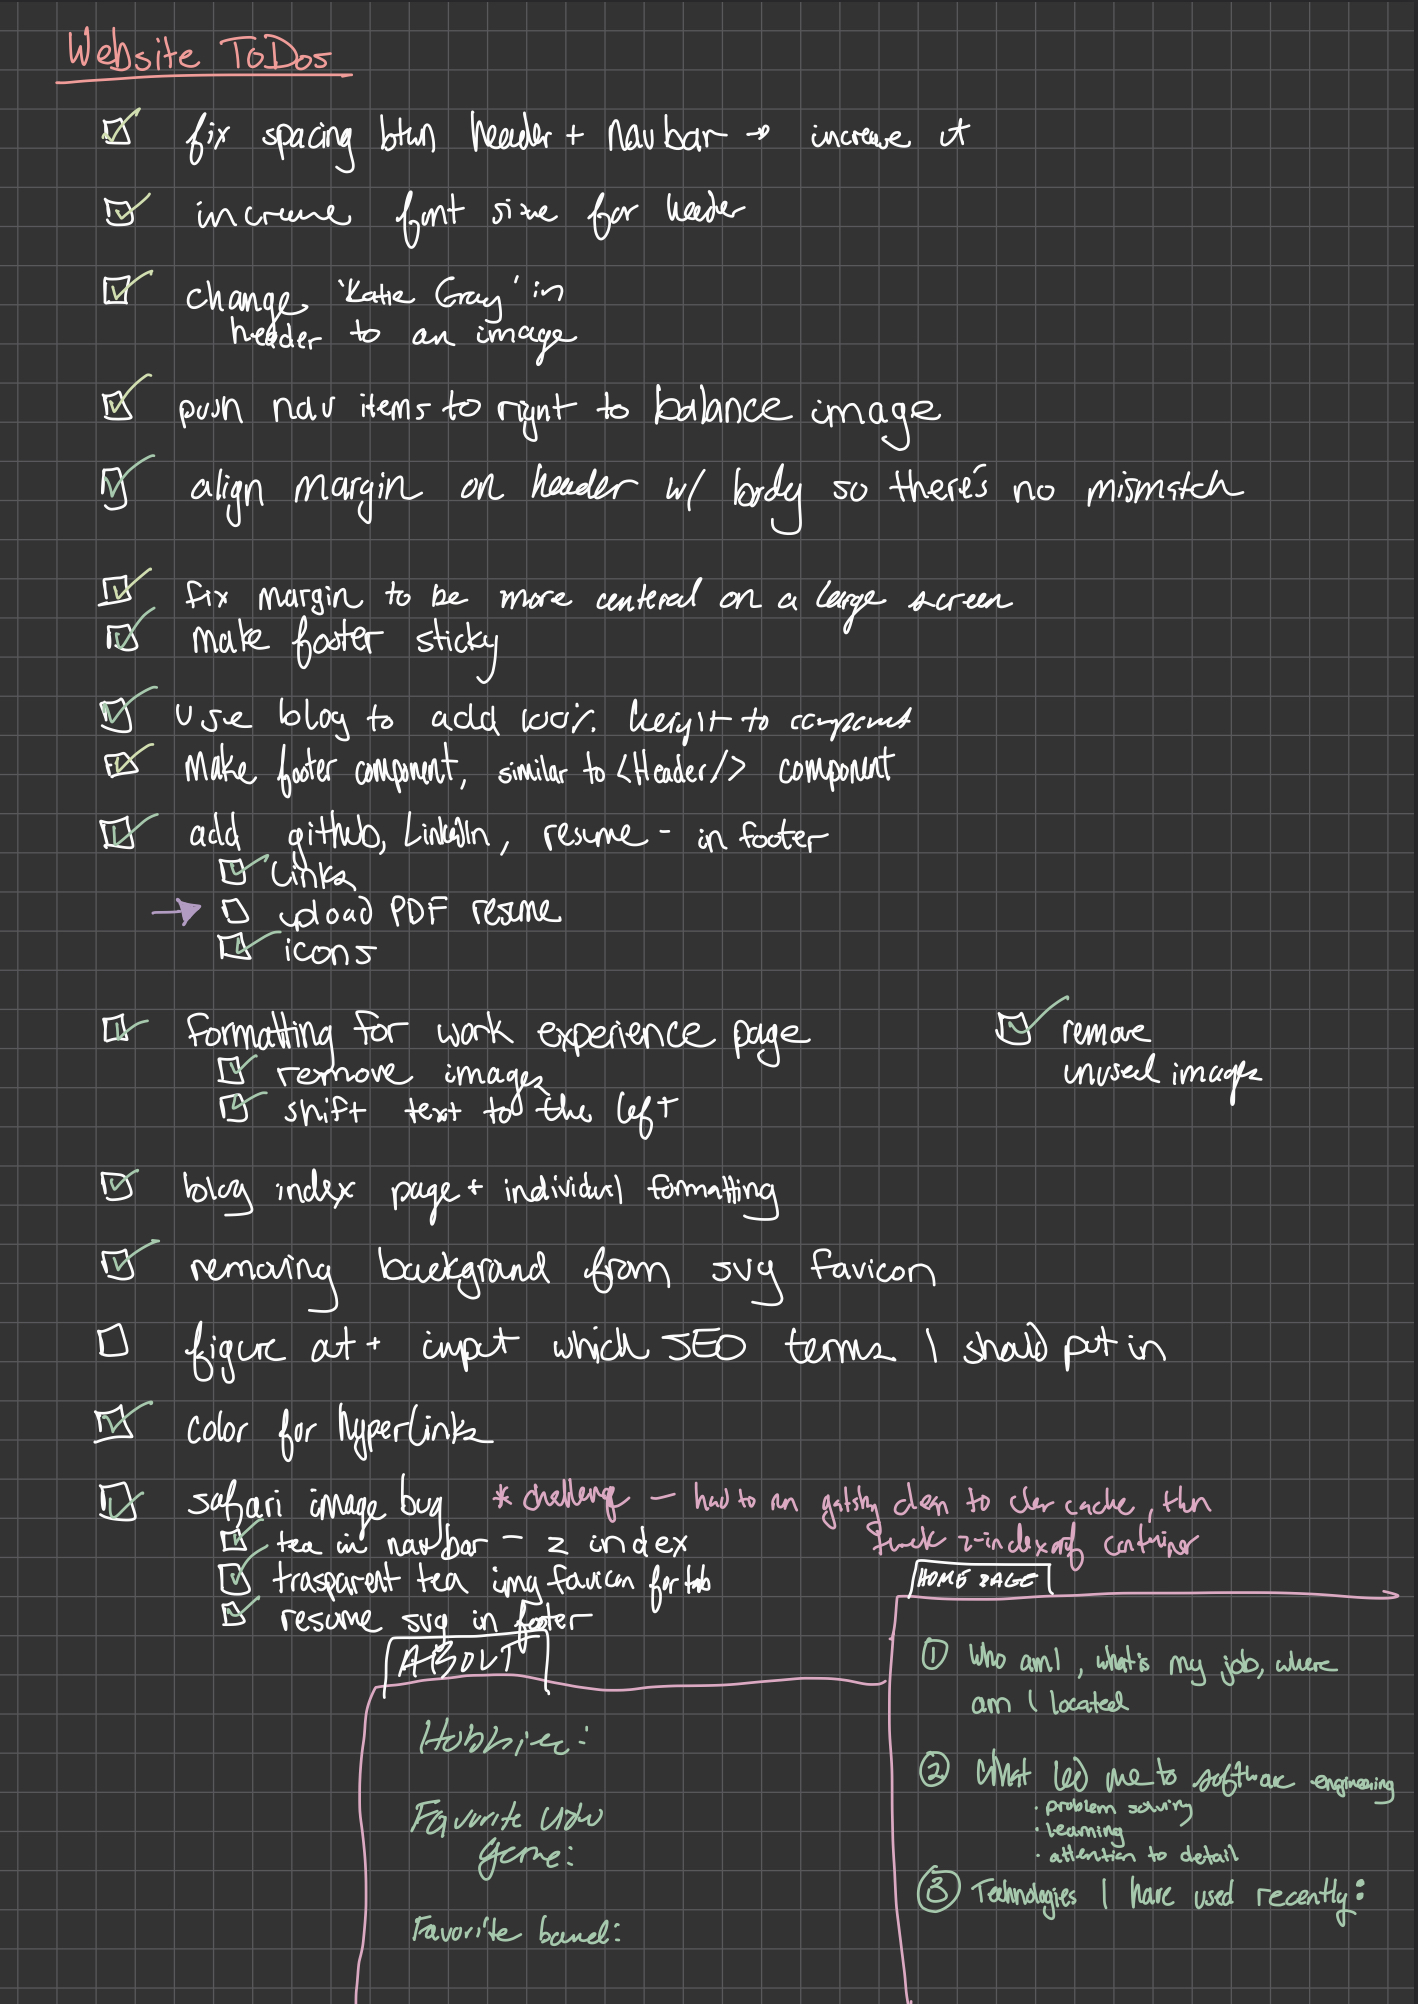 Website ToDos
fix spacing btwn header + navbar → increase it
increase font size for header
change 'Katie Gray' in
header to an image
push nav items to right to balance image
align margin on header w/ body so there's no mismatch
fix margin to be more centered on a large screen
make footer sticky
use blog to add 100% height to component
Make footer component, similar to <Header/> component
add github, LinkedIn, resume - in footer
links
→ upload PDF resume
icons
formatting for work experience page
remove images
shift text to the left
remove
unused images
blog index page + individual formatting
removing background from svg favicon
figure out + input which SEO terms I should put in
color for hyperlinks
safari image bug * challenge — had to run gatsby clean to clear cache, then
z-index of container
tea in navbar - z index
trasparent tea img favicon for tab
resume svg in footer
ABOUT
Hobbies:
Favorite video
game:
Favorite band:
HOME PAGE
① Who am I, what is my job, where
am I located
② What led me to software engineering
· problem solving
· learning
· attention to detail
③ Technologies I have used recently: